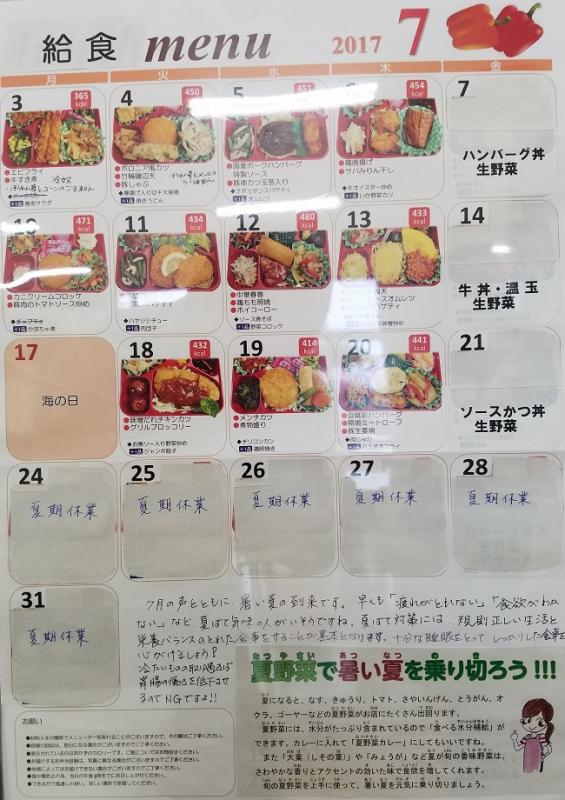 給食 menu 2017 7
月 火 水 木 金
3 365 kcal
●エビフライ
●牛すき煮 冷奴
+1品 春雨サラダ
4 450
●ボロニア風カツ
●竹輪磯辺天
●豚しゃぶ
◆華揚げ入り切干大根煮
+1品 焼きうどん
5 451
●国産ポークハンバーグ
特製ソース
●豚串カツ玉葱入り
◆ナポリタンスパゲティ
+1品 オムレツ
6 454 kcal
●鶏唐揚げ
●サバみりん干し
◆牛オイスター炒め
+1品 いか野菜カツ
7
ハンバーグ丼
生野菜
10 471 kcal
●カニクリームコロッケ
●豚肉のトマトソース炒め
◆チャプチェ
+1品 かぼちゃ煮
11 434 kcal
◆ハヤシシチュー
+1品 肉団子
12 480 kcal
●中華春巻
●鶏もも照焼
●ホイコーロー
◆ソース焼そば
+1品 野菜コロッケ
13 433 kcal
14
牛丼・温玉
生野菜
17
海の日
18 432 kcal
●味噌だれチキンカツ
●グリルブロッコリー
◆お魚ソー入り野菜炒め
+1品 ジャンボ餃子
19 414 kcal
●メンチカツ
●煮物盛り
◆チリコンカン
+1品 鶏照焼き
20 441 kcal
●豆腐彩ハンバーグ
●照焼ミートローフ
●豚生姜焼
◆肉じゃが
21
ソースかつ丼
生野菜
24
夏期休業
25
夏期休業
26
夏期休業
27
夏期休業
28
夏期休業
31
夏期休業
7月の声とともに、暑い夏の到来です。早くも「疲れがとれない」「食欲がわか
ない」など夏ばて気味の人がいそうですね。夏ばて対策には、規則正しい生活と
栄養バランスのとれた食事をすることが基本となります。十分な睡眠をとって しっかりした食事を
心がけましょう!
冷たいものの取り過ぎは
胃腸の働きを低下させ
るのでNGですよ!!
夏野菜で暑い夏を乗り切ろう!!!
夏になると、なす、きゅうり、トマト、さやいんげん、とうがん、オ
クラ、ゴーヤーなどの夏野菜がお店にたくさん出回ります。
夏野菜には、水分がたっぷり含まれているので「食べる水分補給」が
できます。カレーに入れて「夏野菜カレー」にしてもいいですね。
また「大葉(しその葉)」や「みょうが」など夏が旬の香味野菜は、
さわやかな香りとアクセントの効いた味で食欲を増してくれます。
旬の夏野菜を上手に使って、暑い夏を元気に乗り切りましょう。
お願い